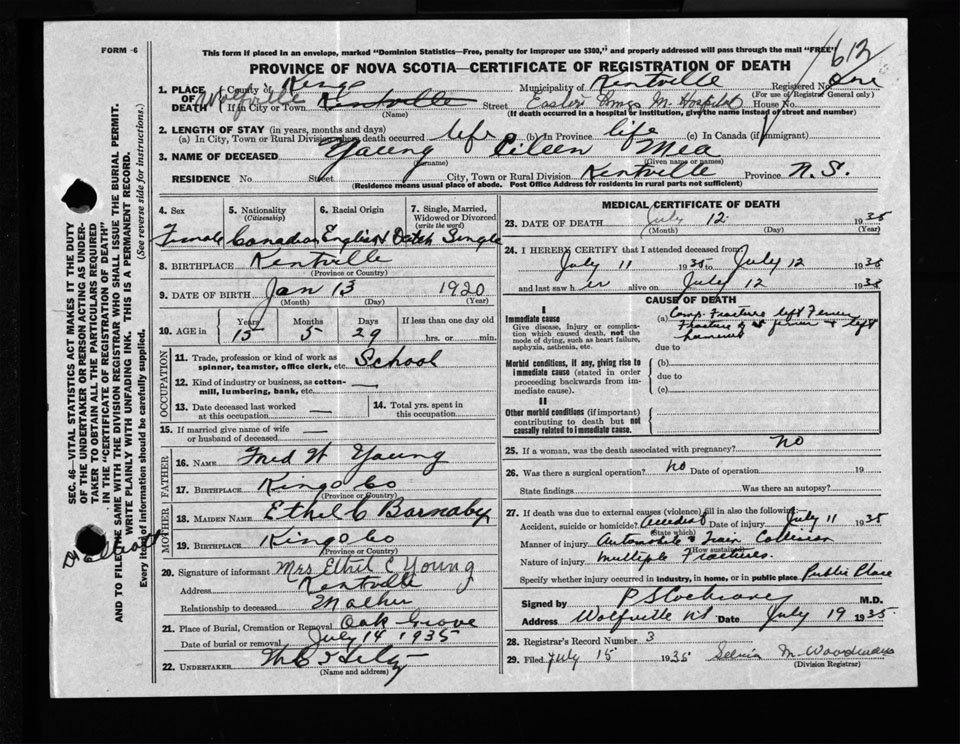 FORM 6
This form if placed in an envelope, marked "Dominion Statistics—Free, penalty for improper use $300," and properly addressed will pass through the mail "FREE"
612
PROVINCE OF NOVA SCOTIA—CERTIFICATE OF REGISTRATION OF DEATH
1. PLACE OF DEATH County of Kings Municipality of Kentville Registered No. One
(For use of Registrar General only)
Wolfville If in City or Town Kentville Street Eastern Kings M. Hospital House No.
(Name) (If death occurred in a hospital or institution, give the name instead of street and number)
2. LENGTH OF STAY (in years, months and days)
(a) In City, Town or Rural Division where death occurred life (b) In Province life (c) In Canada (if immigrant)
3. NAME OF DECEASED Young Eileen Mea
(Surname) (Given name or names)
RESIDENCE No. Street City, Town or Rural Division Kentville Province N. S.
(Residence means usual place of abode. Post Office Address for residents in rural parts not sufficient)
4. Sex 5. Nationality (Citizenship) 6. Racial Origin 7. Single, Married, Widowed or Divorced (write the word)
Female Canadian English Dutch Single
8. BIRTHPLACE Kentville
(Province or Country)
9. DATE OF BIRTH Jan 13 1920
(Month) (Day) (Year)
10. AGE in Years Months Days If less than one day old
15 5 29 hrs. or min.
OCCUPATION
11. Trade, profession or kind of work as spinner, teamster, office clerk, etc. School
12. Kind of industry or business, as cotton-mill, lumbering, bank, etc. —
13. Date deceased last worked at this occupation — 14. Total yrs. spent in this occupation
15. If married give name of wife or husband of deceased —
FATHER
16. NAME Fred W Young
17. BIRTHPLACE Kings Co
(Province or Country)
MOTHER
18. MAIDEN NAME Ethel C Barnaby
19. BIRTHPLACE Kings Co
(Province or Country)
20. Signature of informant Mrs Ethel C Young
Address Kentville
Relationship to deceased Mother
21. Place of Burial, Cremation or Removal Oak Grove
Date of burial or removal July 14 1935
22. UNDERTAKER
(Name and address)
MEDICAL CERTIFICATE OF DEATH
23. DATE OF DEATH July 12 1935
(Month) (Day) (Year)
24. I HEREBY CERTIFY that I attended deceased from
July 11 1935 to July 12 1935
and last saw her alive on July 12 1935
CAUSE OF DEATH
I
Immediate cause
Give disease, injury or complication which caused death, not the mode of dying, such as heart failure, asphyxia, asthenia, etc.
(a) Comp. Fracture left Femur
Fracture of femur & left
due to
Morbid conditions, if any, giving rise to immediate cause (stated in order proceeding backwards from immediate cause).
(b)
due to
(c)
II
Other morbid conditions (if important) contributing to death but not causally related to immediate cause.
25. If a woman, was the death associated with pregnancy? no
26. Was there a surgical operation? no Date of operation 19
State findings Was there an autopsy?
27. If death was due to external causes (violence) fill in also the following:
Accident, suicide or homicide? Accident Date of injury July 11 1935
(State which)
Manner of injury Automobile & Train Collision
(How sustained)
Nature of injury multiple Fractures.
Specify whether injury occurred in industry, in home, or in public place Public Place
Signed by P S Cochrane M.D.
Address Wolfville NS Date July 19 1935
28. Registrar's Record Number 3
29. Filed July 15 1935 M. Woodman
(Division Registrar)
SEC. 46—VITAL STATISTICS ACT MAKES IT THE DUTY
OF THE UNDERTAKER OR PERSON ACTING AS UNDERTAKER TO OBTAIN ALL THE PARTICULARS REQUIRED
IN THE "CERTIFICATE OF REGISTRATION OF DEATH"
AND TO FILE THE SAME WITH THE DIVISION REGISTRAR WHO SHALL ISSUE THE BURIAL PERMIT.
WRITE PLAINLY WITH UNFADING INK. THIS IS A PERMANENT RECORD.
Every item of information should be carefully supplied. (See reverse side for instructions.)